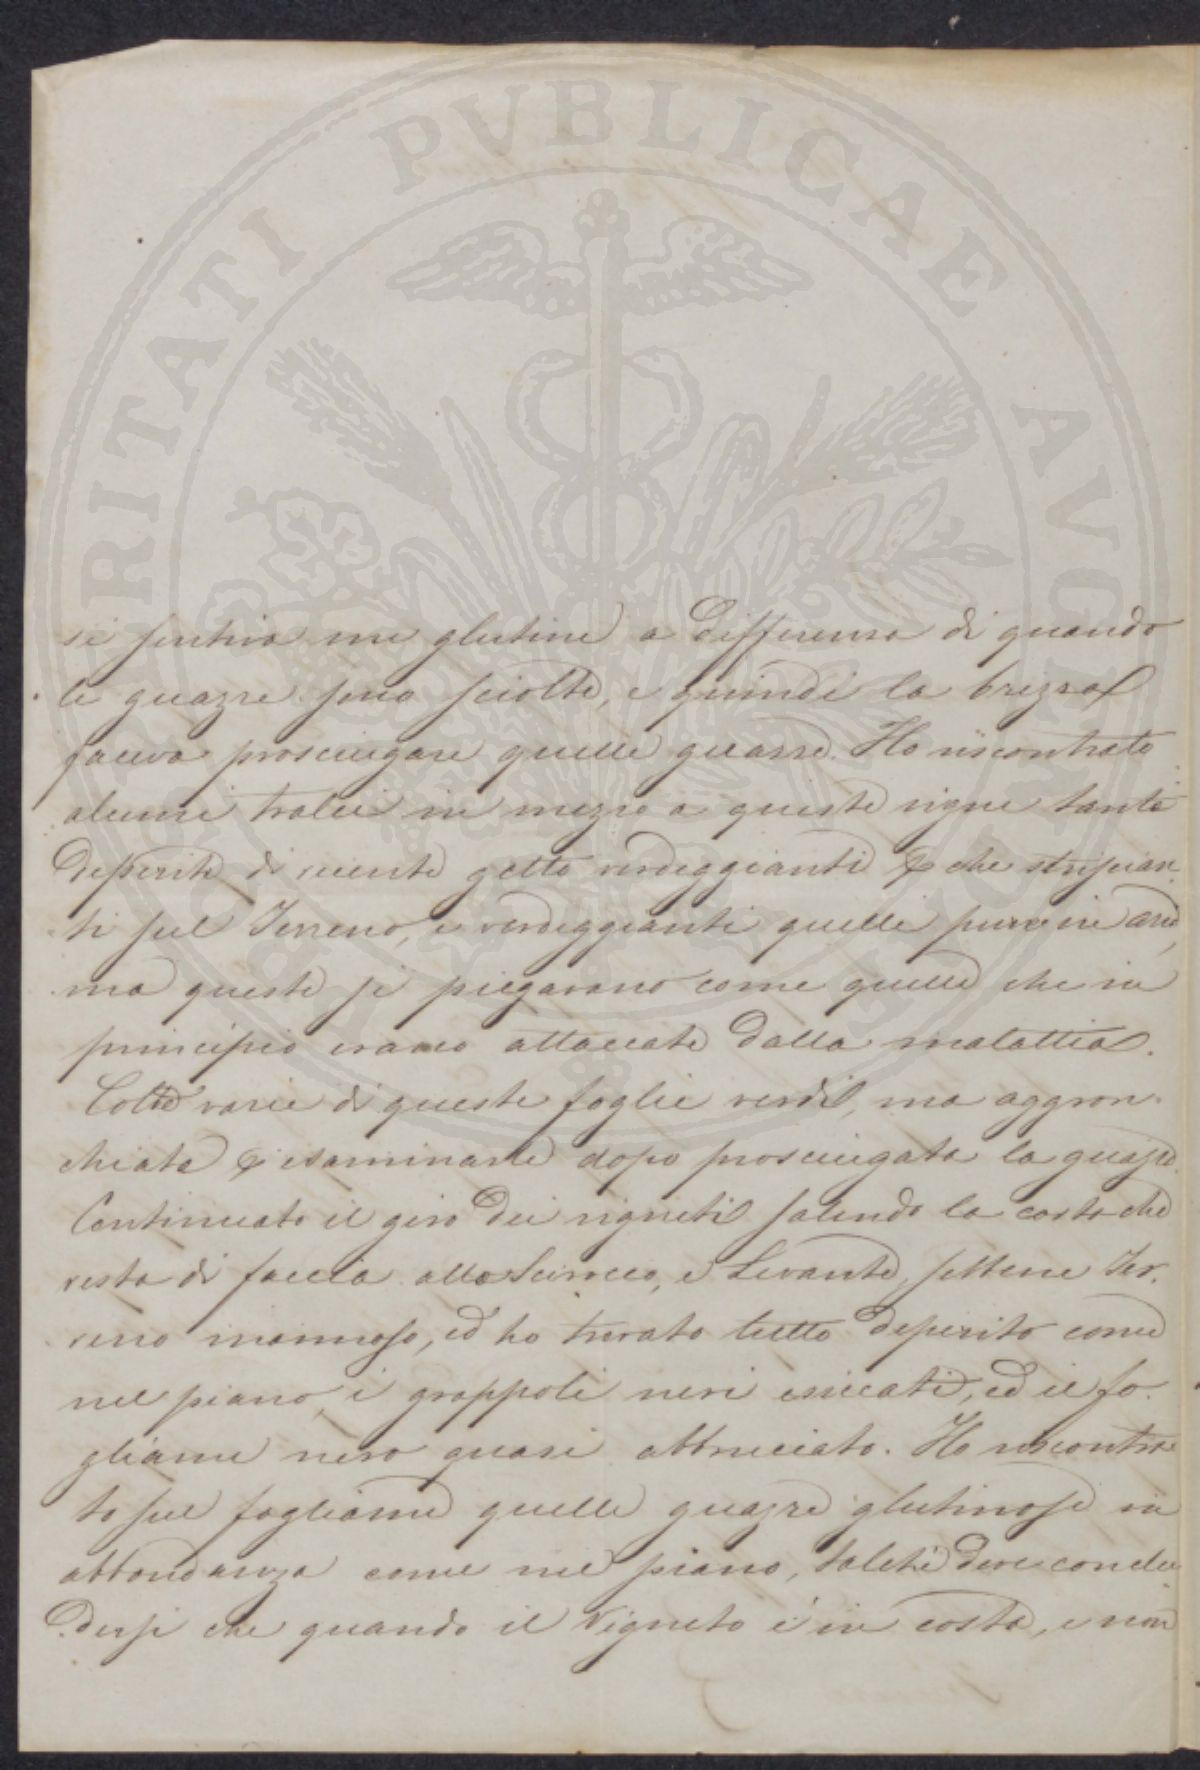 PROSPERITATI PVBLICAE AVGENDAE
si sentiva un glutine a differenza di quando
le guazze sono sciolte, e quindi la brezza
faceva prosciugare quelle guazze. Ho riscontrato
alcuni tralci in mezzo a queste vigne tanto
deperite di recente getto verdeggianti che striscian
ti sul Terreno, e verdeggianti quelli pure in
ma queste si piegavano come quelle che in
principio erano attaccate dalla malattia.
Colte varie di queste foglie verdi, ma aggron
chiate esaminarle dopo prosciugata la guazza
Continuato il giro dei vigneti salendo la costa che
resta di faccia allo Scirocco, e Levante, Ter
reno marnoso, ed ho trovato tutto deperito come
nel piano, i grappoli neri essiccati, ed il fo
gliame nero quasi abbruciato. Ho riscontra
to sul fogliame quelle guazze glutinose in
abbondanza come nel piano, talché deve conclu
dersi che quando il Vigneto é in costa, e non